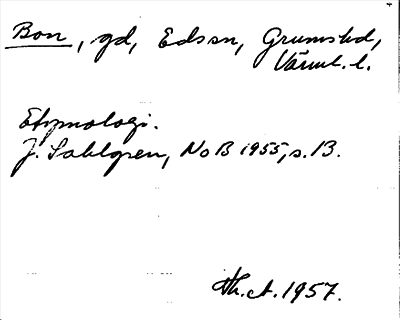 Bon, gd, Eds sn, Grums hd,
Värml. l.
Etymologi.
J. Sahlgren, NoB 1955, s. 13.
1957.